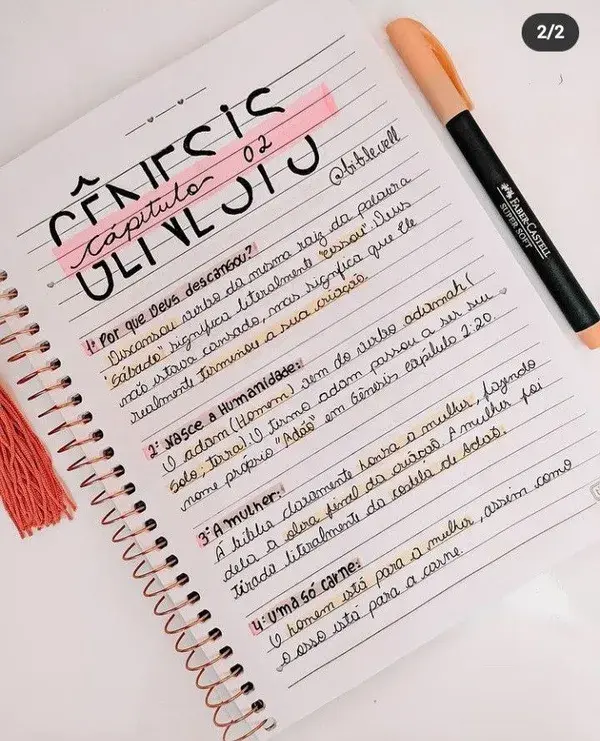 2/2
GÊNESIS
capítulo 02
@biblevell
1° Por que Deus descansou?
Descansou verbo da mesma raiz da palavra
"sábado" significa literalmente "cessou". Deus
não estava cansado, mas significa que Ele
realmente terminou a sua criação.
2° Nasce a Humanidade:
O adam (Homem) vem do verbo adamah (
solo; terra). O termo adam passou a ser seu
nome próprio "Adão" em Gênesis capítulo 2:20.
3° A mulher:
A bíblia claramente honra a mulher, fazendo
dela a obra final da criação. A mulher foi
tirada literalmente da costela de Adão.
4° Uma só carne:
O homem está para a mulher, assim como
o osso está para a carne.
FABER-CASTELL
SUPER SOFT